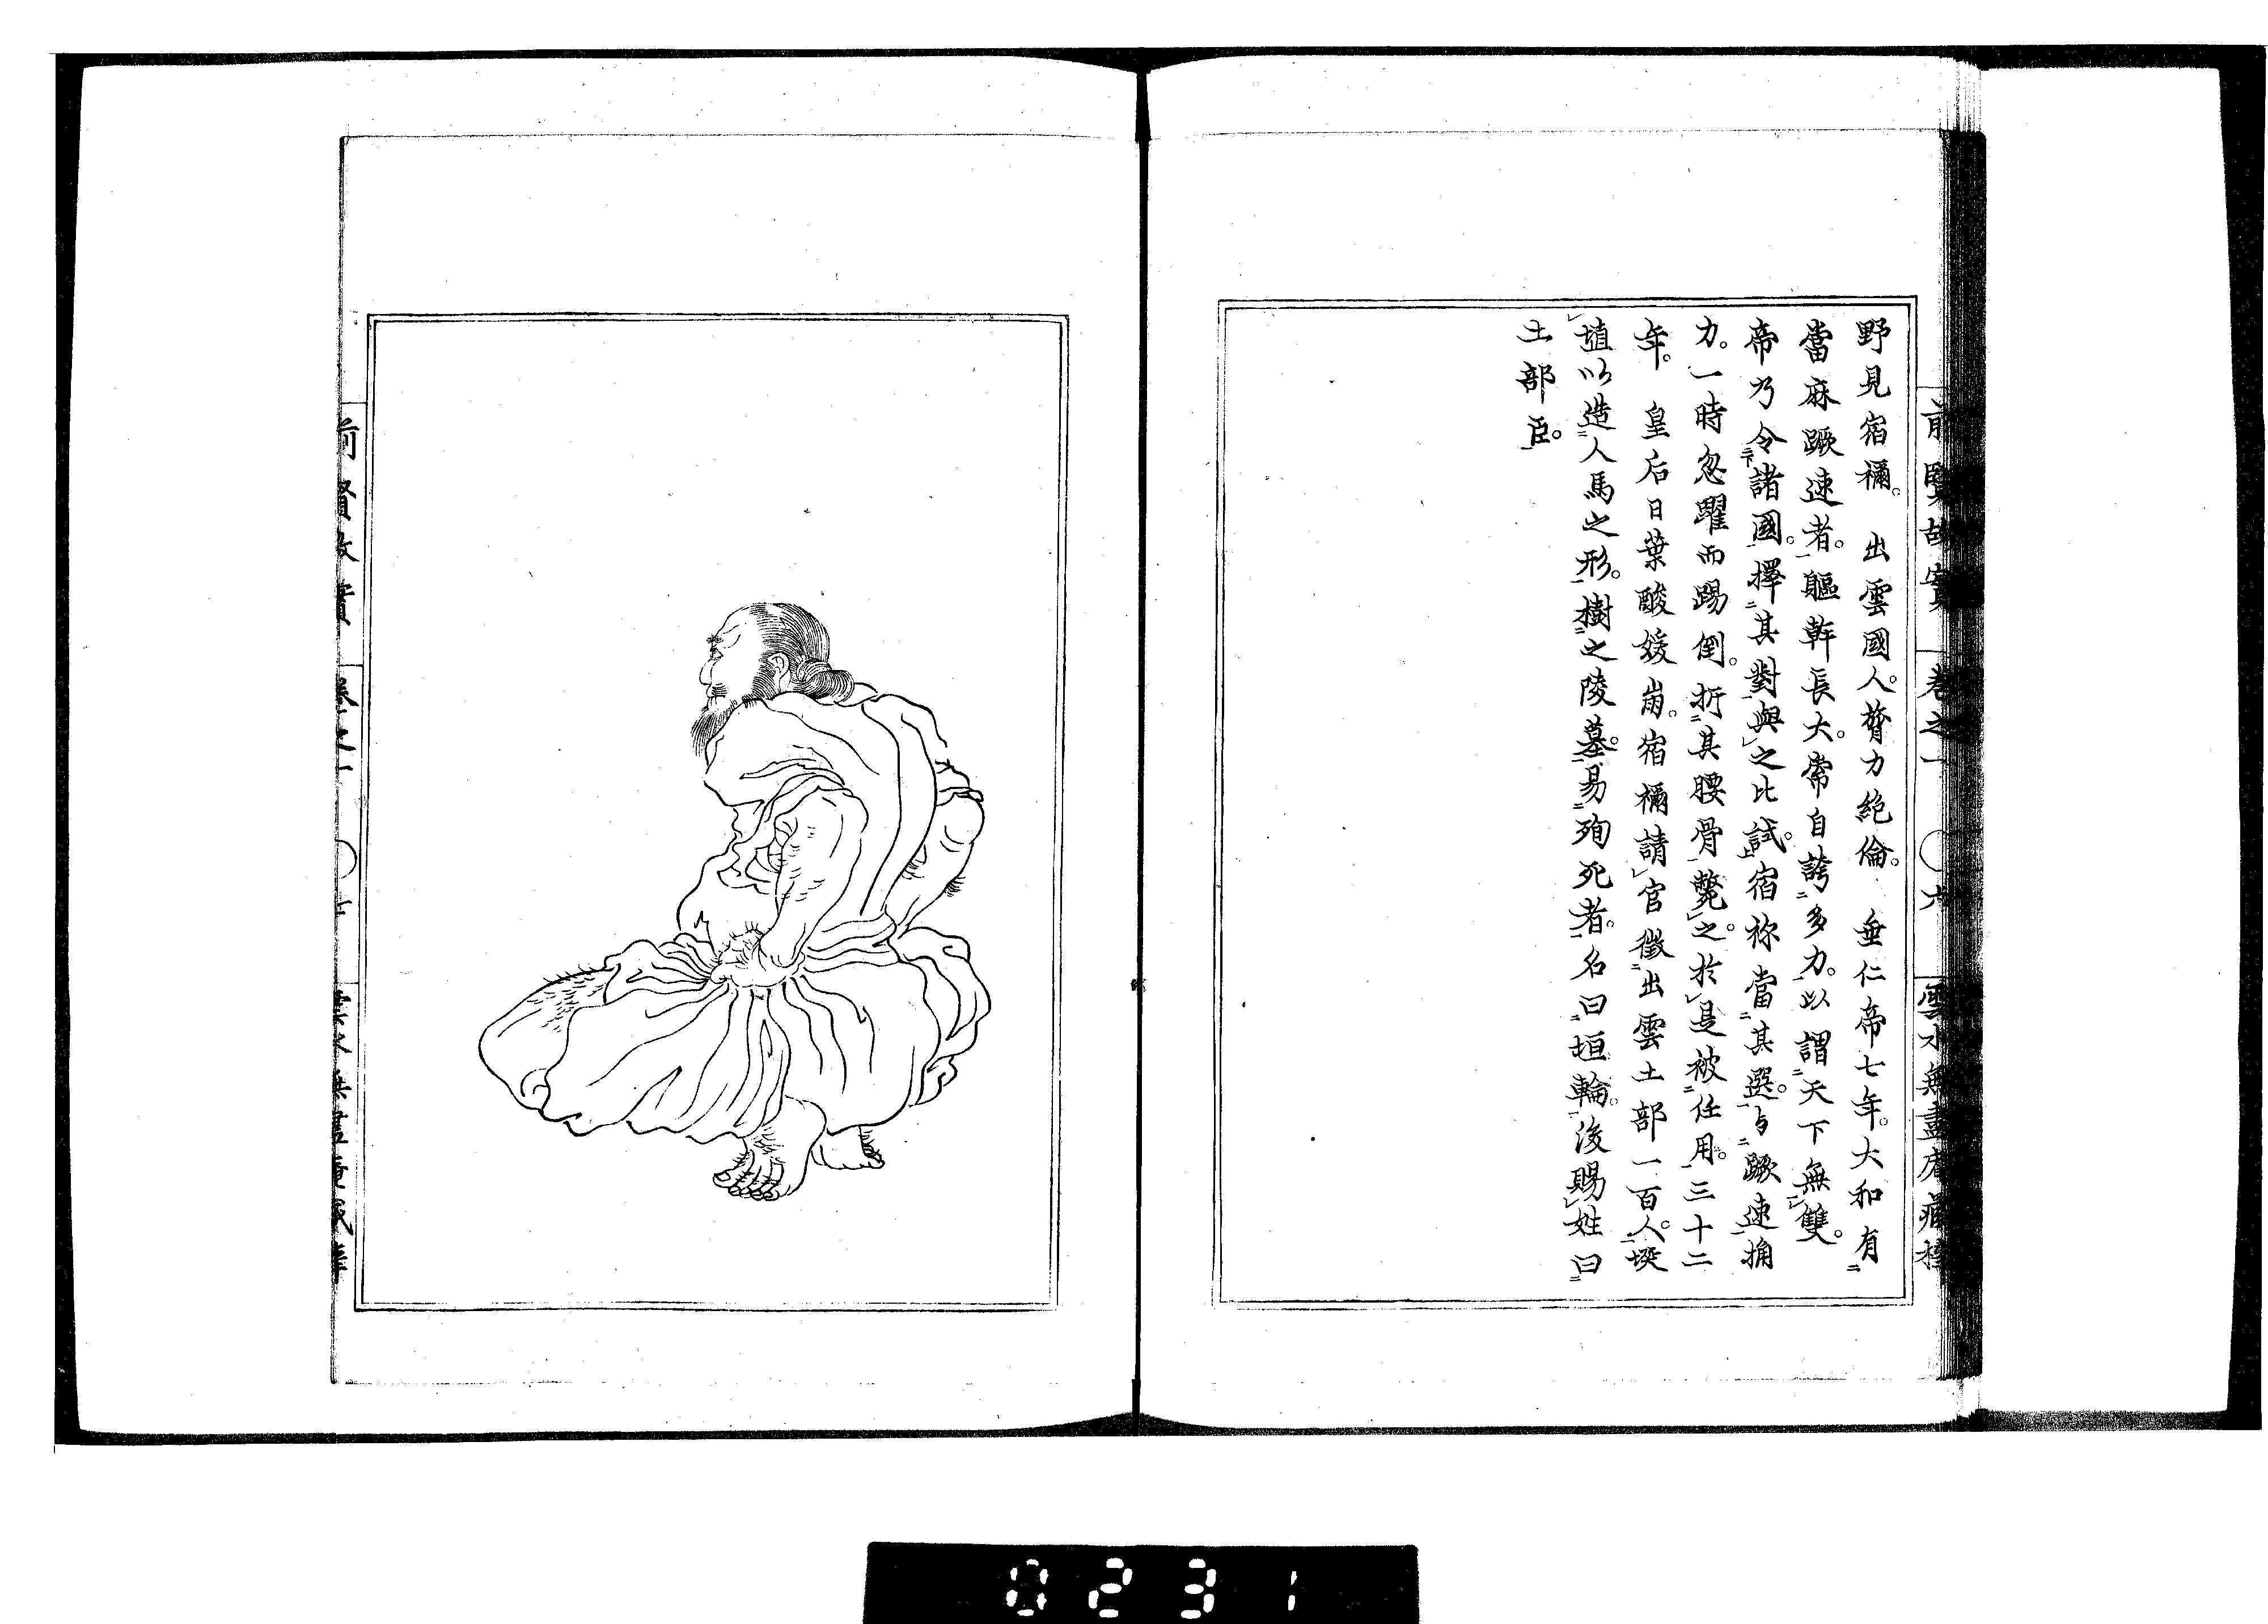 前賢故實 卷之一 ○六 雲水無盡庵藏梓
野見宿禰。 出雲國人。膂力絶倫。 垂仁帝七年。大和有
當麻蹶速者。軀幹長大。常自誇多力。以謂天下無雙。
帝乃令諸國。擇其對與之比試。宿祢當其選。与蹶速捔
力。一時忽躍而踢倒。折其腰骨斃之。於是被任用。三十二
年。 皇后日葉酸媛崩。宿禰請官徵出雲土部一百人。埃
埴以造人馬之形。樹之陵墓。易殉死者。名曰垣輪。後賜姓曰
土部臣。
前賢故實 卷之一
0231